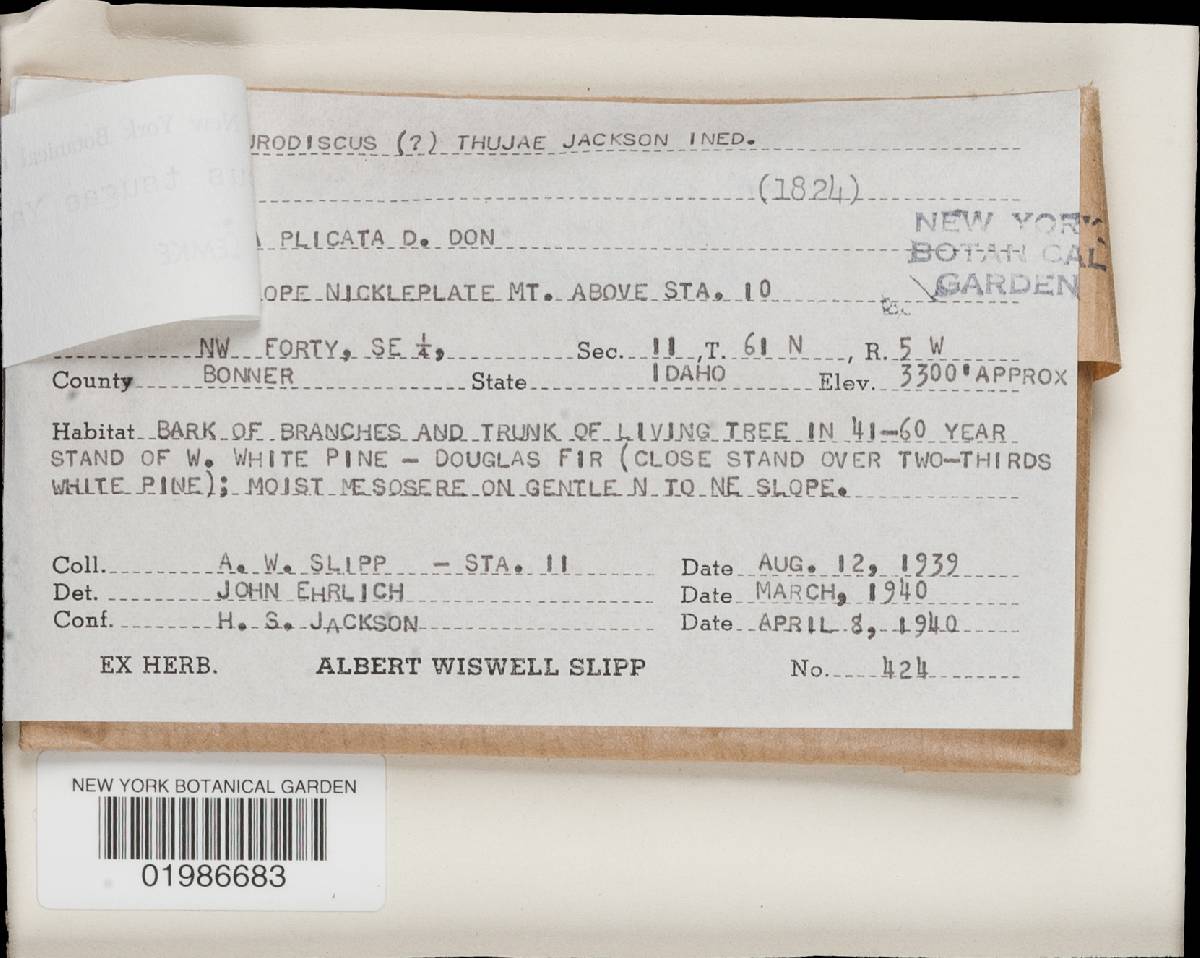 URODISCUS (?) THUJAE JACKSON INED.
(1824)
PLICATA D. DON
NEW YORK
BOTANICAL
GARDEN
OPE NICKLEPLATE MT. ABOVE STA. 10
NW FORTY, SE ¼, Sec. 11, T. 61 N, R. 5 W
County BONNER State IDAHO Elev. 3300' APPROX
Habitat BARK OF BRANCHES AND TRUNK OF LIVING TREE IN 41-60 YEAR
STAND OF W. WHITE PINE - DOUGLAS FIR (CLOSE STAND OVER TWO-THIRDS
WHITE PINE); MOIST MESOSERE ON GENTLE N TO NE SLOPE.
Coll. A. W. SLIPP - STA. 11 Date AUG. 12, 1939
Det. JOHN EHRLICH Date MARCH, 1940
Conf. H. S. JACKSON Date APRIL 8, 1940
EX HERB. ALBERT WISWELL SLIPP No. 424
NEW YORK BOTANICAL GARDEN
01986683